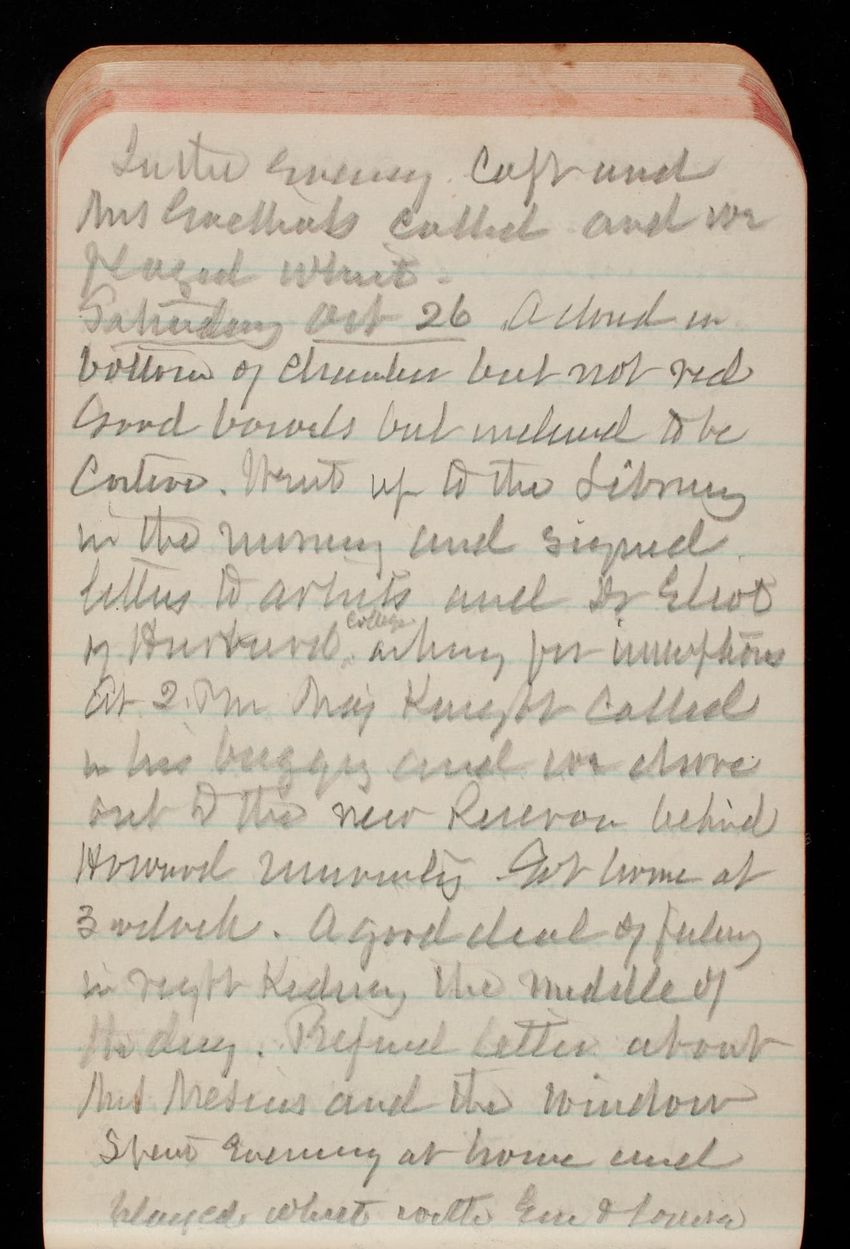 In the evening Capt and
Mrs Goethals called and we
played whist.
Saturday Oct 26 A cloud in
bottom of chamber but not red
Good bowels but inclined to be
Costive. Went up to the Library
in the morning and signed
letters to artists and Dr Eliot
of Harvard College asking for inscriptions
At 2 PM Maj Knight called
in his buggy and we drove
out to the new Reservoir behind
Howard University Got home at
3 oclock. A good deal of feeling
in right Kidney the middle of
the day. letter about
Mrs and the window
Spent evening at home and
played whist with &